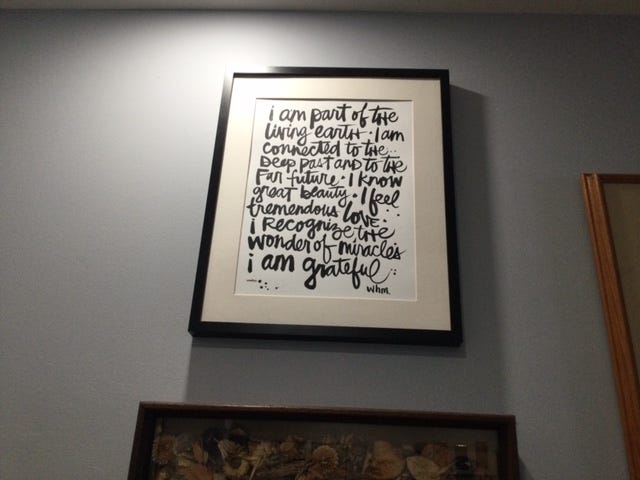 i am part of the
living earth · I am
connected to the..
Deep past and to the
Far future · I know
great beauty · I feel
tremendous love ·
i recognize the
wonder of miracles
i am grateful
whm.